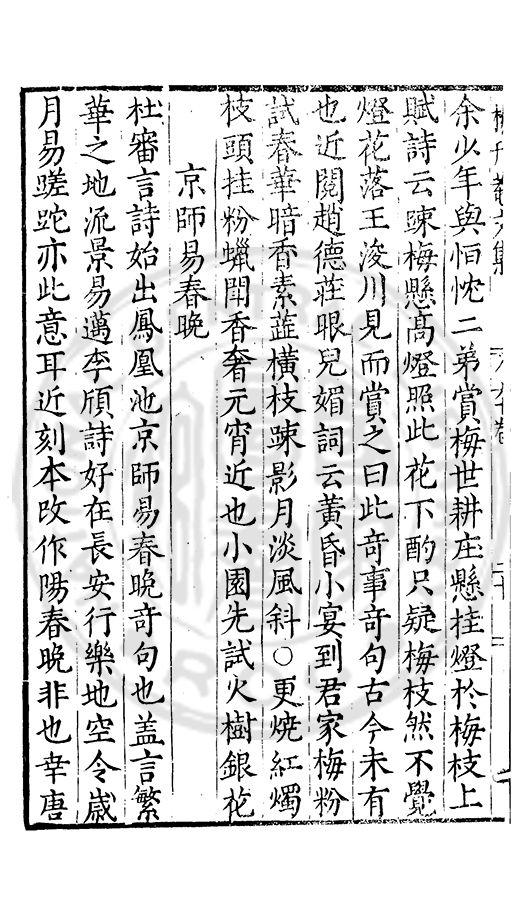 余少年與恒忱二弟賞梅世耕庄懸挂燈於梅枝上
賦詩云踈梅懸高燈照此花下酌只疑梅枝然不覺
燈花落王浚川見而賞之曰此竒事竒句古今未有
也近閱趙德莊眼兒媚詞云黄昏小宴到君家梅粉
試春華暗香素蘂橫枝踈影月淡風斜○更燒紅燭
枝頭挂粉蠟鬥香奢元宵近也小園先試火樹銀花
京師易春晚
杜審言詩始出鳳凰池京師易春晚竒句也盖言繁
華之地流景易邁李頎詩好在長安行樂地空令歳
月易蹉跎亦此意耳近刻本改作陽春晚非也幸唐